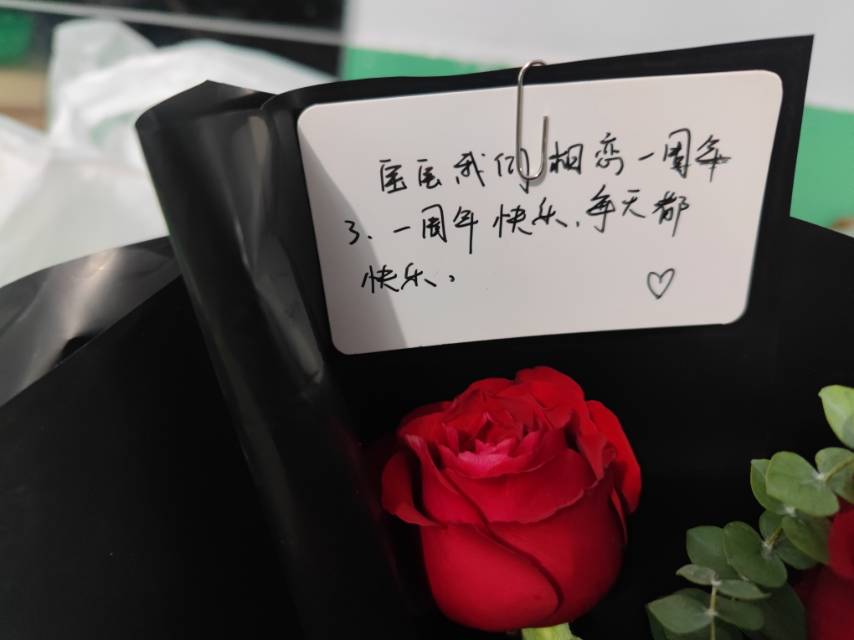 医医我们相恋一周年
了、一周年快乐，每天都
快乐。